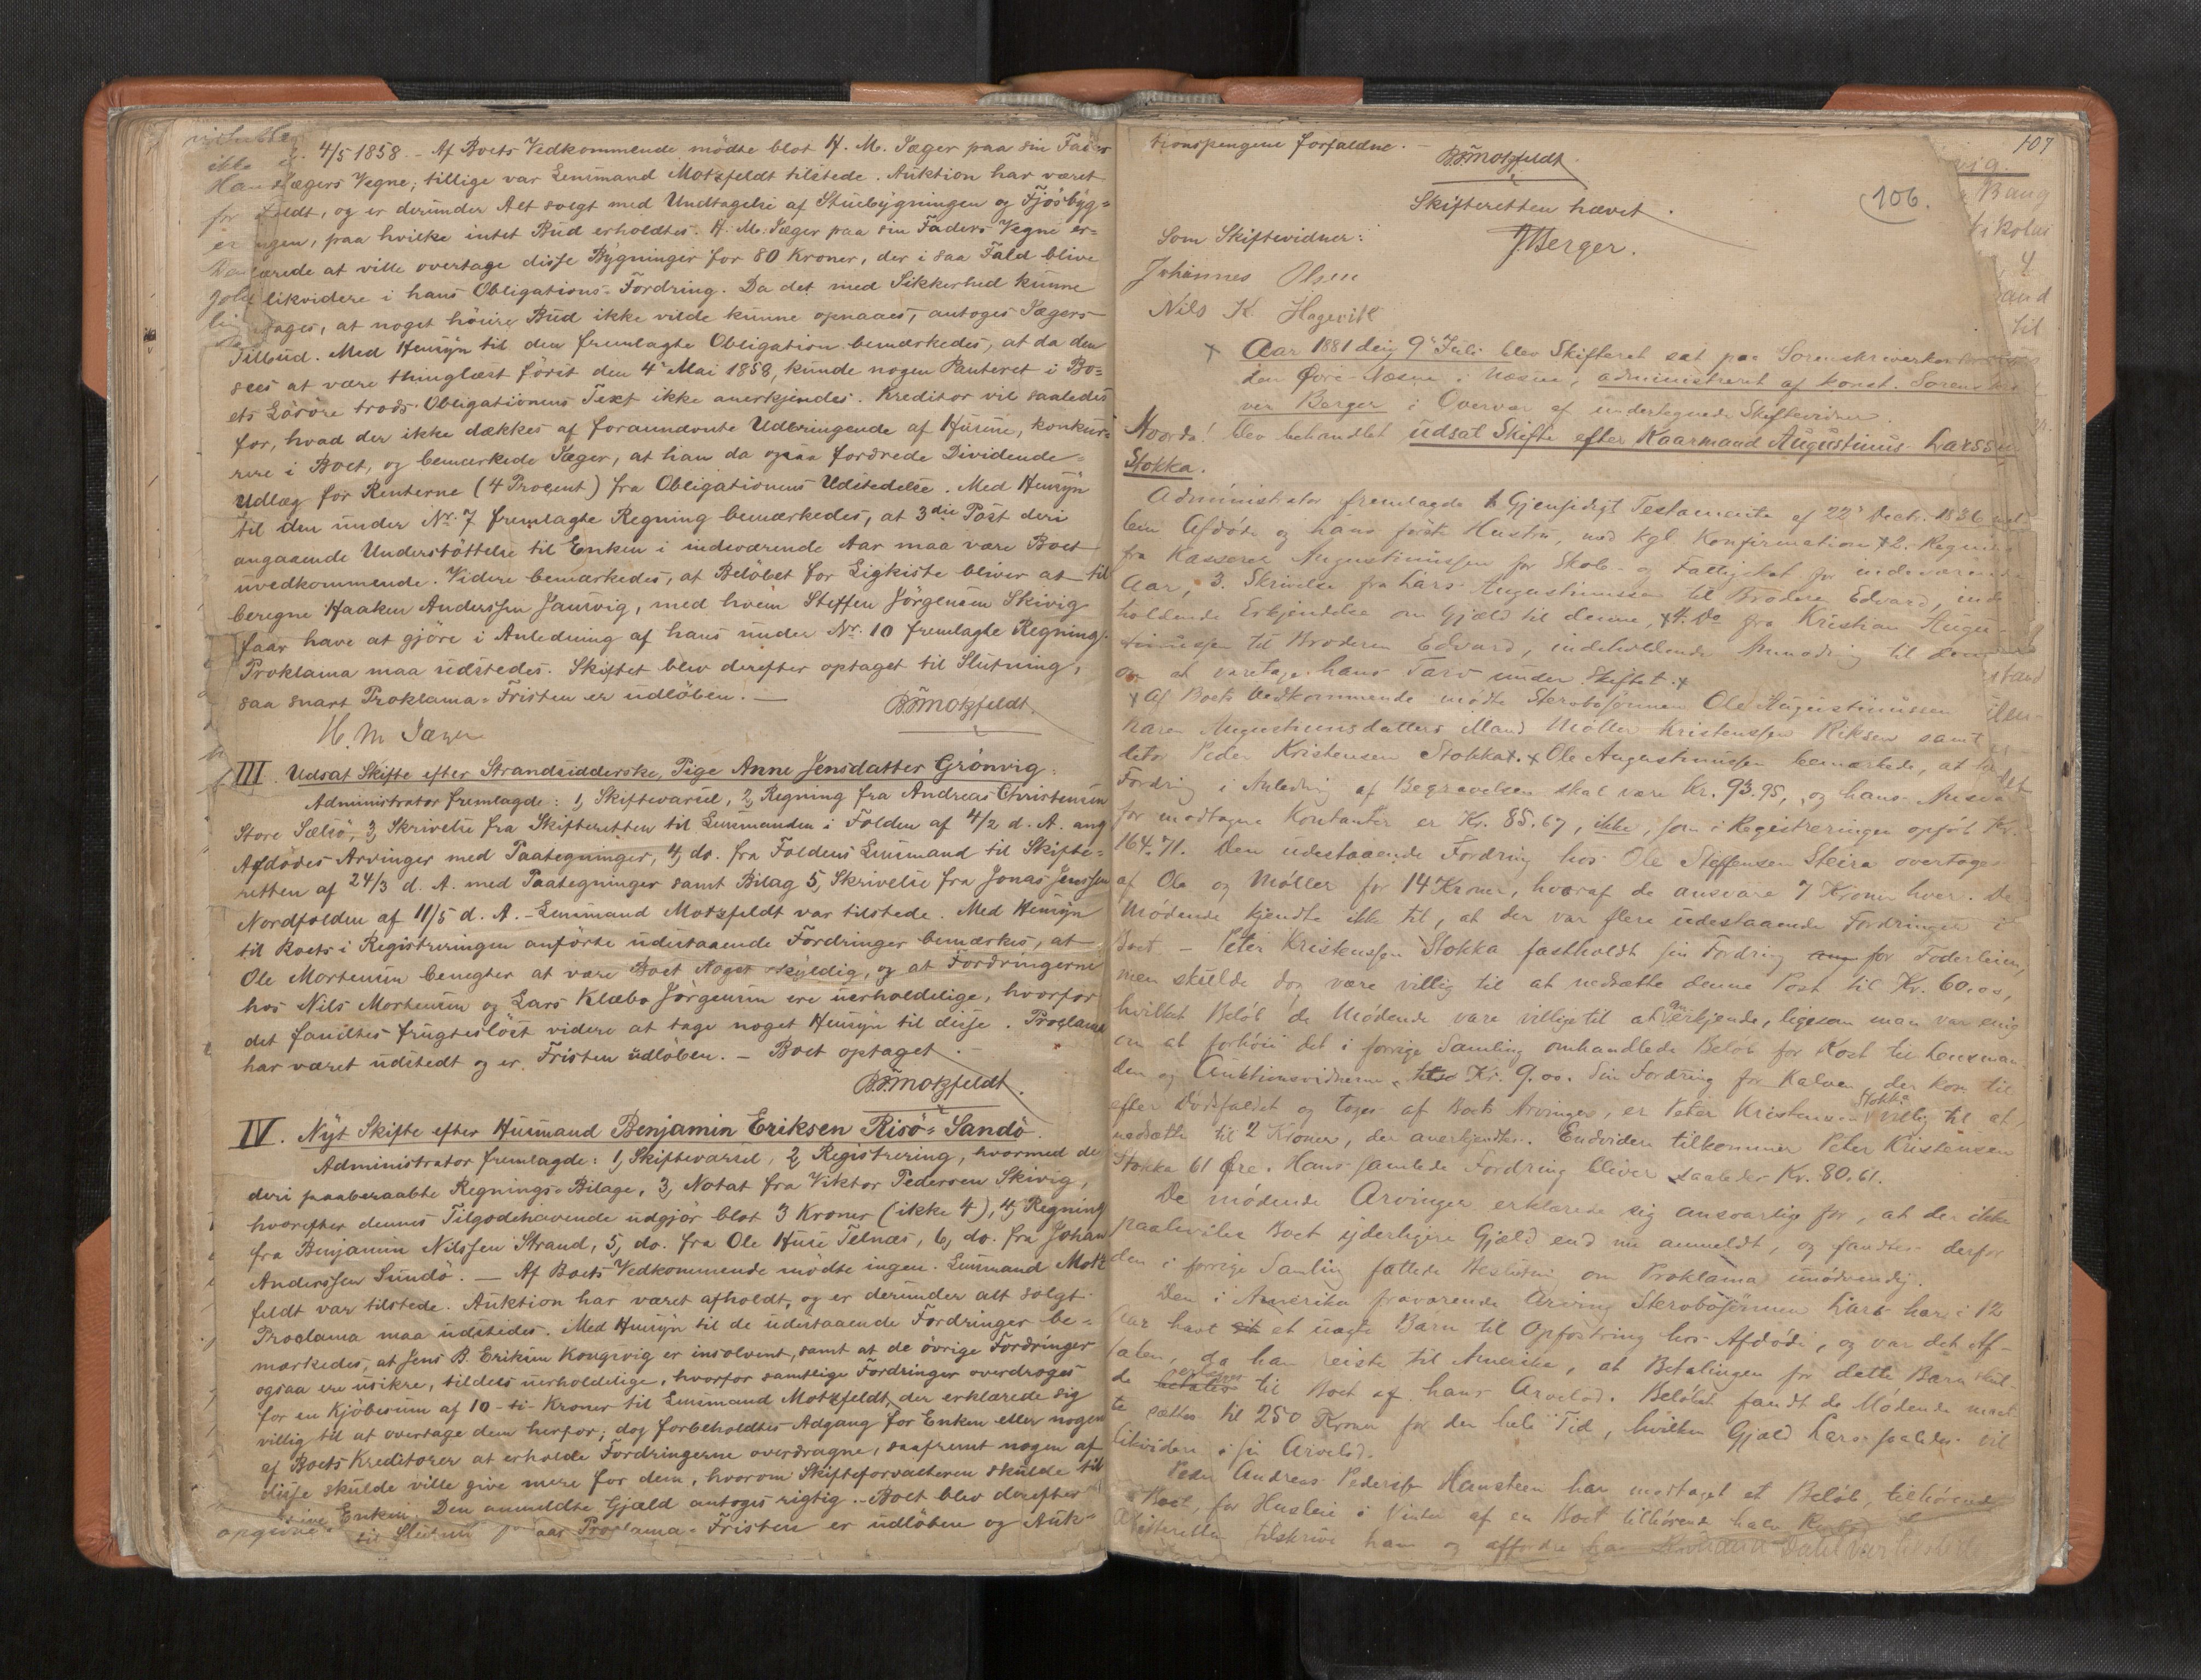 4/5 1858. - Af Boets Vedkommende mödte blot H. M. Jæger paa sin Faders
Jægers Vegne; tillige var Lensmand Motzfeldt tilstede. Auktion har været
og er derunder Alt solgt med Undtagelse af Stuebygningen og Fjösbyg-
ngen, paa hvilke intet Bud erholdtes. H. M. Jæger paa sin Faders Vegne er-
klærede at ville overtage disse Bygninger for 80 Kroner, der i saa Fald blive
likvidere i hans Obligations-Fordring. Da det med Sikkerhed kunne
antages, at noget höiere Bud ikke vilde kunne opnaaes, antoges Jægers
Tilbud. Med Hensyn til den fremlagte Obligation bemærkedes, at da den
sees at være thinglæst först den 4de Mai 1858, kunde nogen Panteret i Bo-
ets Lösöre trods Obligationens Text ikke anerkjendes. Kreditor vil saaledes
for, hvad der ikke dækkes af forannævnte Udbringende af Husene, konkur-
rere i Boet, og bemærkede Jæger, at han da ogsaa fordrede Dividende-
Udlæg for Renterne (4 Procent) fra Obligationens Udstedelse. Med Hensyn
til den under Nr. 7 fremlagte Regning bemærkedes, at 3die Post deri
angaaende Understöttelse til Enken i indeværende Aar maa være Boet
uvedkommende. Videre bemærkedes, at Belöbet for Ligkiste bliver at til
beregne Haaken Anderssen Jansvig, med hvem Steffen Jörgensen Skivig
faar have at gjöre i Anledning af hans under Nr. 10 fremlagte Regning.
Proklama maa udstedes. Skiftet blev derefter optaget til Slutning,
saa snart Proklama-Fristen er udlöben. -
Motzfeldt
H. M. Jæger
III. Udsat Skifte efter Strandsidderske, Pige Anne Jensdatter Grönvig.
Administrator fremlagde: 1, Skiftevarsel, 2, Regning fra Andreas Christensen
Store Sælsö, 3, Skrivelse fra Skifteretten til Lensmanden i Folden af 4/2 d. A. ang
Afdödes Arvinger med Paategninger, 4, do. fra Foldens Lensmand til Skifte-
retten af 24/3 d. A. med Paategninger samt Bilag 5, Skrivelse fra Jonas Jenssen
Nordfolden af 11/5 d. A. - Lensmand Motzfeldt var tilstede. Med Hensyn
til Boets i Registreringen anförte udestaaende Fordringer bemærkes, at
Ole Mortensen benegter at være Boet Noget skyldig, og at Fordringerne
hos Nils Mortensen og Lars Klæbo Jörgensen ere uerholdelige, hvorfor
det fandtes frugteslöst videre at tage noget Hensyn til disse. Proclama
har været udstedt og er Fristen udlöben. - Boet optaget.
Motzfeldt.
IV. Nyt Skifte efter Husmand Benjamin Eriksen Risö-Sandö.
Administrator fremlagde: 1, Skiftevarsel, 2, Registrering, hvormed de
deri paaberaabte Regnings-Bilage, 3, Notat fra Viktor Pedersen Skivig,
hvorefter dennes Tilgodehavende udgjör blot 3 Kroner (ikke 4), 4, Regning
fra Benjamin Nilssen Strand, 5, do. fra Ole Telnæs, 6, do. fra Johan
Anderssen Sundö. - Af Boets Vedkommende mödte ingen. Lensmand Motz
feldt var tilstede. Auktion har været afholdt, og er derunder alt solgt.
Proclama maa udstedes. Med Hensyn til de udestaaende Fordringer be-
mærkedes, at Jens B. Eriksen Kongsvig er insolvent, samt at de övrige Fordringer
ogsaa ere usikre, tildels uerholdelige, hvorfor samtlige Fordringer overdroges
for en Kjöbesum af 10 - ti - Kroner til Lensmand Motzfeldt, der erklærede sig
villig til at overtage dem herfor; dog forbeholdtes Adgang for Enken eller nogen
af Boets Kreditorer at erholde Fordringerne overdragne, saafremt nogen af
disse skulde ville give mere for dem, hvorom Skifteforvalteren skulde til
Enken. Den anmeldte Gjæld antoges rigtig. - Boet blev derefter
Proclama-Fristen er udlöben og Auk-
tionspengene forfaldne. -
107
Motzfeldt
106.
Skifteretten hævet.
Som Skiftevidner:
JBerger.
Johannes Olsen
Nils K. Hagevik
Aar 1881 den 9de Juli blev Skifteret sat paa Sorenskriverkontoret
administreret af konst. Sorenskri
ver Berger i Overvær af undertegnede Skiftevidner.
Hvorda! blev behandlet udsat Skifte efter Kaarmand Augustinus Larssen
Stokka.
Administrator fremlagde 1. Gjensidigt Testamente af 22de Decbr. 1836 mel
lem Afdöde og hans förste Hustru, med kgl. Konfirmation 2. Regning
fra Kasserer Augustinussen for Skole- og Fattigskat for indeværende
Aar, 3. Skrivelse fra Lars Augustinussen til Broderen Edvard, inde
holdende Erkjendelse om Gjæld til denne, 4. Do fra Kristian Augu-
stinussen til Broderen Edvard, indeholdende Anmodning til denne
om at varetage hans Tarv under Skiftet.
Af Boets Vedkommende mödte Sterbosönnen Ole Augustinussen
Maren Augustinusdatters Mand Möller Kristenssen Riksen samt
Peder Kristensen Stokka. Ole Augustinussen bemærkede, at
Fordring i Anledning af Begravelsen skal være Kr. 93.95, og hans Ansvar
for modtagne Kontanter er Kr. 85.67, ikke, som i Registreringen opfört Kr.
164.71. Den udestaaende Fordring hos Ole Steffensen Steira overtoges
af Ole og Möller for 14 Kroner, hvoraf de ansvare 7 Kroner hver. De
Mödende kjendte ikke til, at der var flere udestaaende Fordringer i
Boet. - Peter Kristenssen Stokka fastholdt sin Fordring for Foderleien,
men skulde dog være villig til at nedsætte denne Post til Kr. 60.00,
hvilket Belöb de Mödende vare villige til at anerkjende, ligesom man var enig
om at forhöie det i forrige Samling omhandlede Belöb for Kost til Lensman-
den og Auktionsvidnerne til Kr. 9.00. Sin Fordring for Kalven, der kom til
efter Dödsfaldet og toges af Boets Arvinger, er Peter Kristensen Stokka villig til at
nedsætte til 2 Kroner, der anerkjendtes. Endvidere tilkommer Peter Kristensen
Stokka 61 Öre. Hans samlede Fordring bliver saaledes Kr. 80.61.
De mödende Arvinger erklærede sig ansvarlige for, at der ikke
paahviler Boet yderligere Gjæld end nu anmeldt, og fandtes derfor
den i forrige Samling fattede Beslutning om Proklama unödvendig.
Den i Amerika fraværende Arving Sterbosönnen Lars har i 12
Aar havt et uægte Barn til Opfostring hos Afdöde, og var det Af-
talen, da han reiste til Amerika, at Betalingen for dette Barn skul-
de til Boet af hans Arvelod. Belöbet fandt de Mödende
sættes til 250 Kroner for den hele Tid, hvilken Gjæld Lars saaledes vil
likvidere i sin Arvelod.
Peder Andreas Pederssen Hansteen har modtaget et Belöb, tilhörende
Boet, for Husleie i Vinter af en Boet tilhörende halv
Skifteretten tilskrive ham og affordre ham